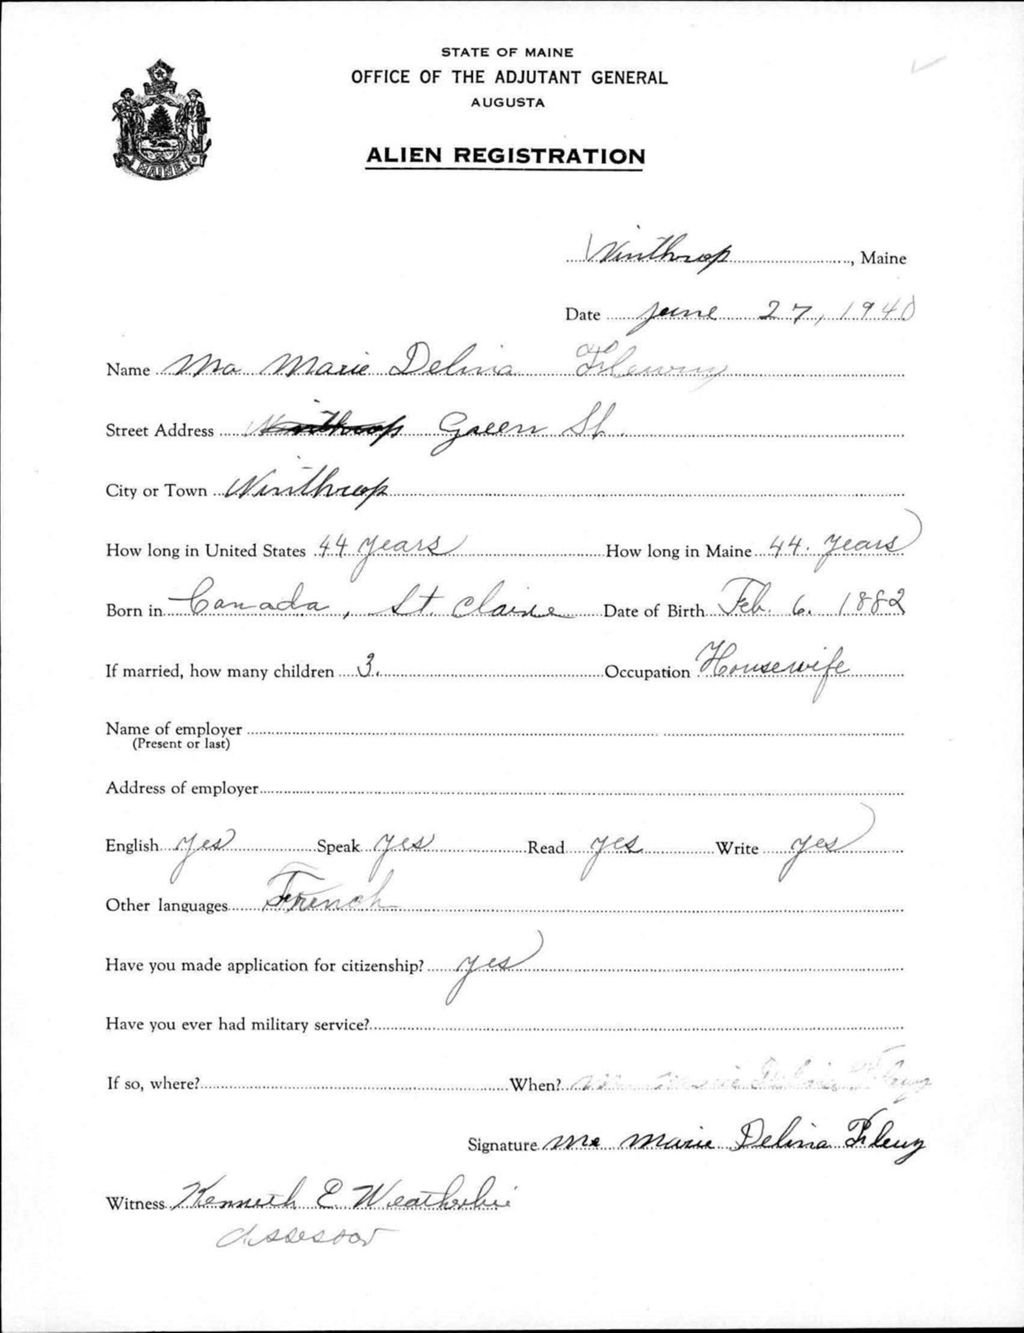 STATE OF MAINE
OFFICE OF THE ADJUTANT GENERAL
AUGUSTA
MAINE
ALIEN REGISTRATION
Winthrop, Maine
Date June 27, 1940
Name Marie Delina
Street Address Winthrop Green St.
City or Town Winthrop
How long in United States 44 years How long in Maine 44. years
Born in Canada, St. Claire Date of Birth Feb. 6. 1882
If married, how many children 3. Occupation Housewife
Name of employer
(Present or last)
Address of employer
English yes Speak yes Read yes Write yes
Other languages French
Have you made application for citizenship? yes
Have you ever had military service?
If so, where? When? Marie Delina
Signature Marie Delina
Witness Kenneth E Weatherbie
Assessor